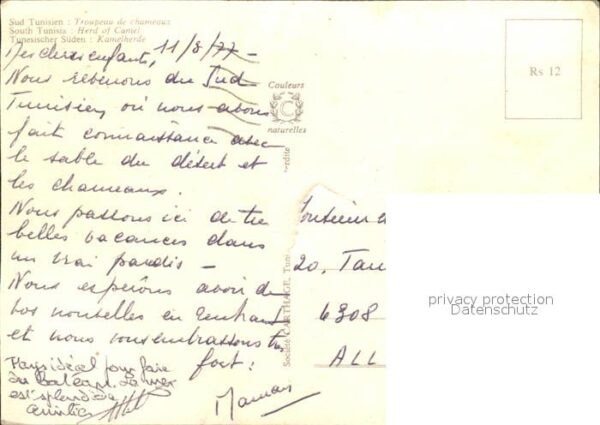 Sud Tunisien : Troupeau de chameaux
South Tunisia : Herd of Camel
Tunesischer Süden : Kamelherde
Mes chers enfants, 11/8/77 –
Nous revenons du Sud
Tunisien, où nous avons
fait connaissance avec
le sable du désert et
les chameaux.
Nous passons ici de
belles vacances dans
un vrai paradis –
Nous espérons avoir de
vos nouvelles en rentrant
et nous vous embrassons
fort :
Maman
Pays idéal pour faire
du bateau, la mer
est splendide
Couleurs
C
naturelles
Société CARTHAGE, Tuni
Rs 12
20, Tau
6308
ALL
privacy protection
Datenschutz